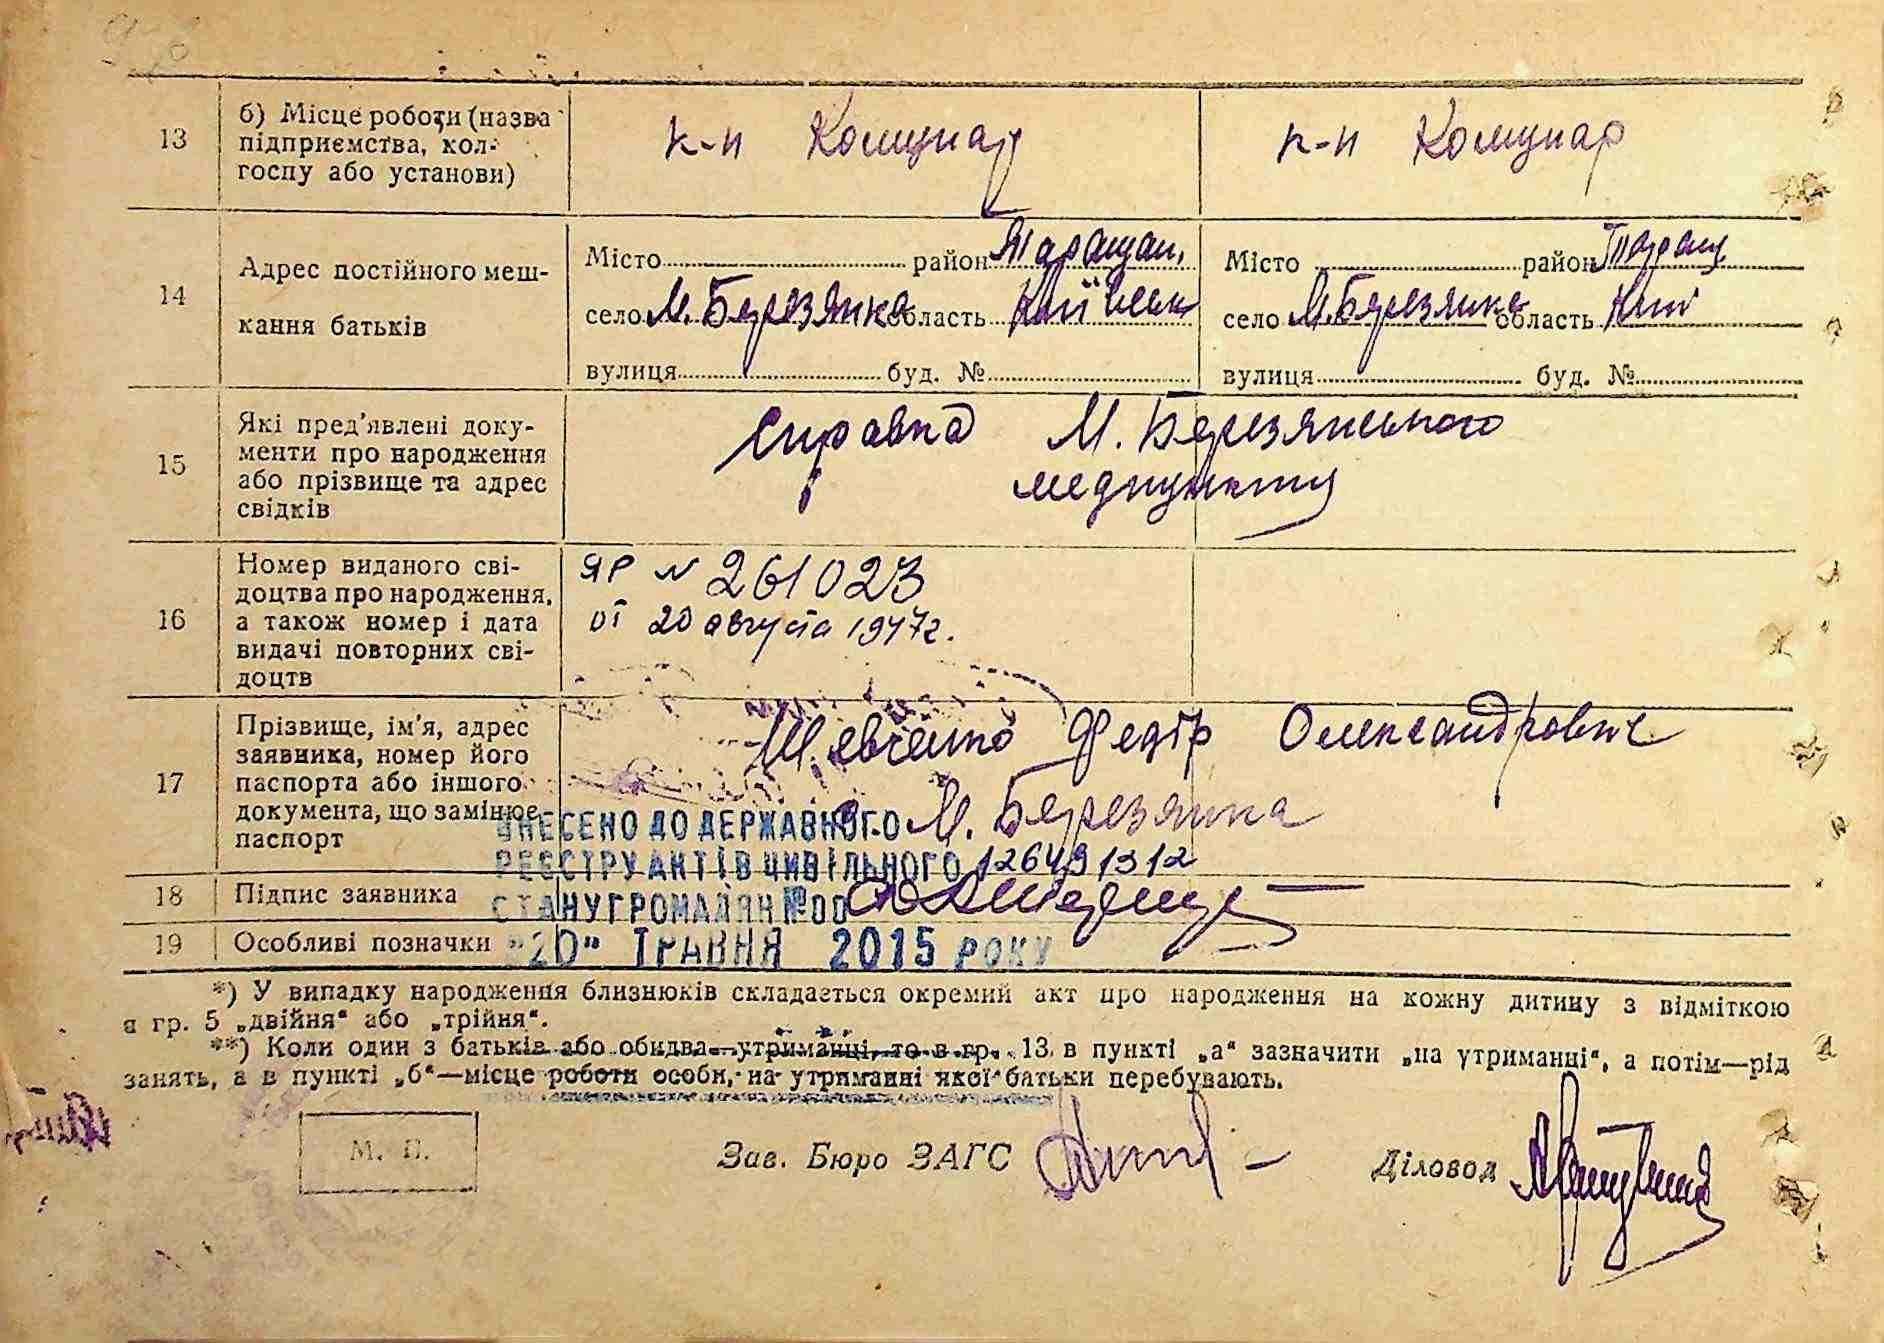 13 б) Місце роботи (назва підприємства, колгоспу або установи) к-п Комунар к-п Комунар
14 Адрес постійного мешкання батьків
Місто район Таращан. Місто район Таращ
село М. Березянка область Київськ село М. Березянка область Київ
вулиця буд. № вулиця буд. №
15 Які пред'явлені доку-
менти про народження
або прізвище та адрес
свідків
справка М. Березянського
медпункту
16 Номер виданого сві-
доцтва про народження,
а також номер і дата
видачі повторних сві-
доцтв
ЯР N 261023
от 20 августа 1947г.
17 Прізвище, ім'я, адрес
заявника, номер його
паспорта або іншого
документа, що замінює
паспорт
Шевченко Федір Олександрович
М. Березянка
ВНЕСЕНО ДО ДЕРЖАВНОГО
РЕЄСТРУ АКТІВ ЦИВІЛЬНОГО 126491312
СТАНУ ГРОМАДЯН №00
"20" ТРАВНЯ 2015 РОКУ
18 Підпис заявника
19 Особливі позначки
*) У випадку народження близнюків складається окремий акт про народження на кожну дитину з відміткою
в гр. 5 „двійня“ або „трійня“.
**) Коли один з батьків або обидва утриманці, то в гр. 13 в пункті „а“ зазначити „на утриманні“, а потім—рід
занять, а в пункті „б“—місце роботи особи, на утриманні якої батьки перебувають.
М. П.
Зав. Бюро ЗАГС Діловод